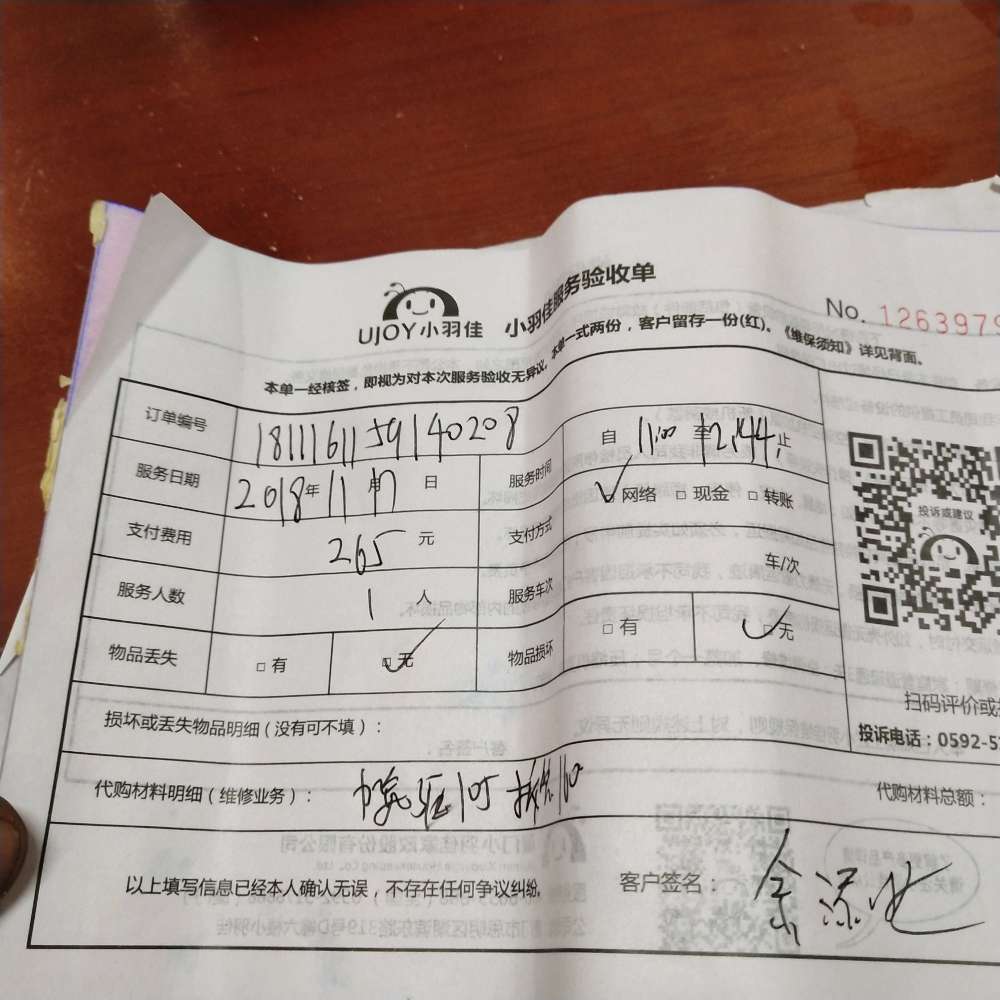 UJOY小羽佳 小羽佳服务验收单
No. 1263979
本单一经核签，即视为对本次服务验收无异议。本单一式两份，客户留存一份(红)。《维保须知》详见背面。
订单编号 1811161159140208
服务时间 自 11:00 至 12:44 止
服务日期 2018年 11月 17日
支付费用 265 元 支付方式 网络 □ 现金 □ 转账
服务人数 1 人 服务车次 车/次
物品丢失 □ 有 □ 无 物品损坏 □ 有 □ 无
投诉或建议
扫码评价或
投诉电话：0592-5
损坏或丢失物品明细（没有可不填）：
代购材料明细（维修业务）： 105
代购材料总额：
以上填写信息已经本人确认无误，不存在任何争议纠纷。 客户签名：